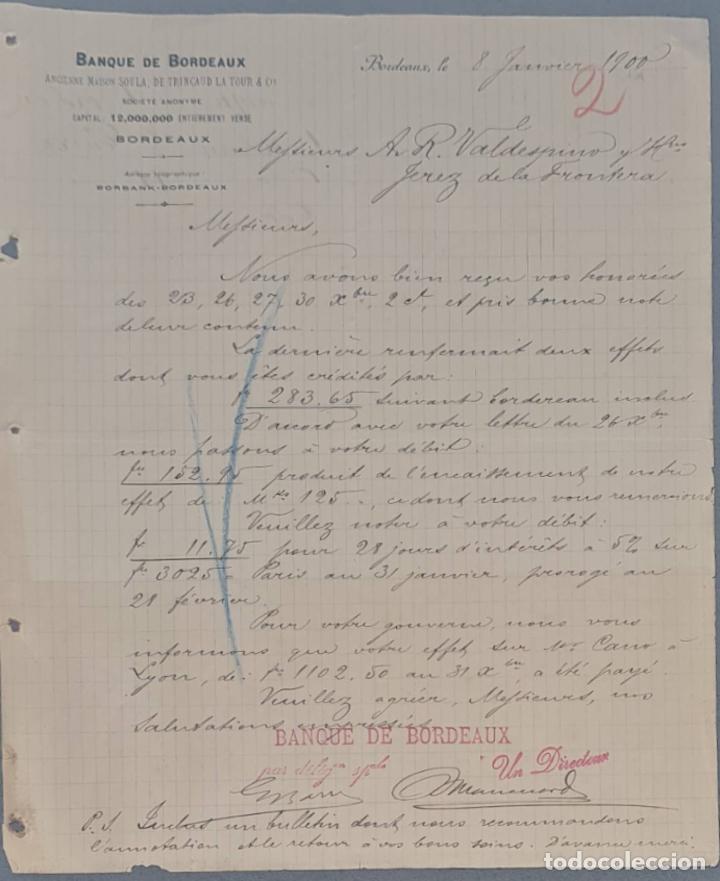 BANQUE DE BORDEAUX
ANCIENNE MAISON SOULA, DE TRINCAUD LA TOUR & Cie
SOCIÉTÉ ANONYME
CAPITAL: 12,000,000 ENTIÈREMENT VERSÉ
BORDEAUX
Adresse télégraphique:
BORBANK-BORDEAUX
Bordeaux, le 8 Janvier 1900
2
Messieurs A. R. Valdespino y Hno
Jerez de la Frontera
Messieurs,
Nous avons bien reçu vos honorées
des 23, 26, 27, 30 Xbre, 2 ct, et pris bonne note
de leur contenu.
La dernière renfermait deux effets
dont vous êtes crédités par:
f 283.65 suivant bordereau inclus
D'accord avec votre lettre du 26 Xbre,
nous passons à votre débit:
frs 152.95 produit de l'encaissement de notre
effet de: Mks 125 -, ce dont nous vous remercions
Veuillez noter à votre débit:
fr 11.75 pour 28 jours d'intérêts à 5% sur
frs 3025 - Paris au 31 janvier, prorogé au
28 février.
Pour votre gouverne, nous vous
informons que votre effet sur Mr Cano à
Lyon, de: frs 1102.50 au 31 Xbre, a été payé.
Veuillez agréer, Messieurs, nos
salutations empressées
BANQUE DE BORDEAUX
par délégon spale
Un Directeur
P.S. Inclus un bulletin dont nous recommandons
l'annotation et le retour à vos bons soins. D'avance merci.
todocoleccion
todocoleccion.net